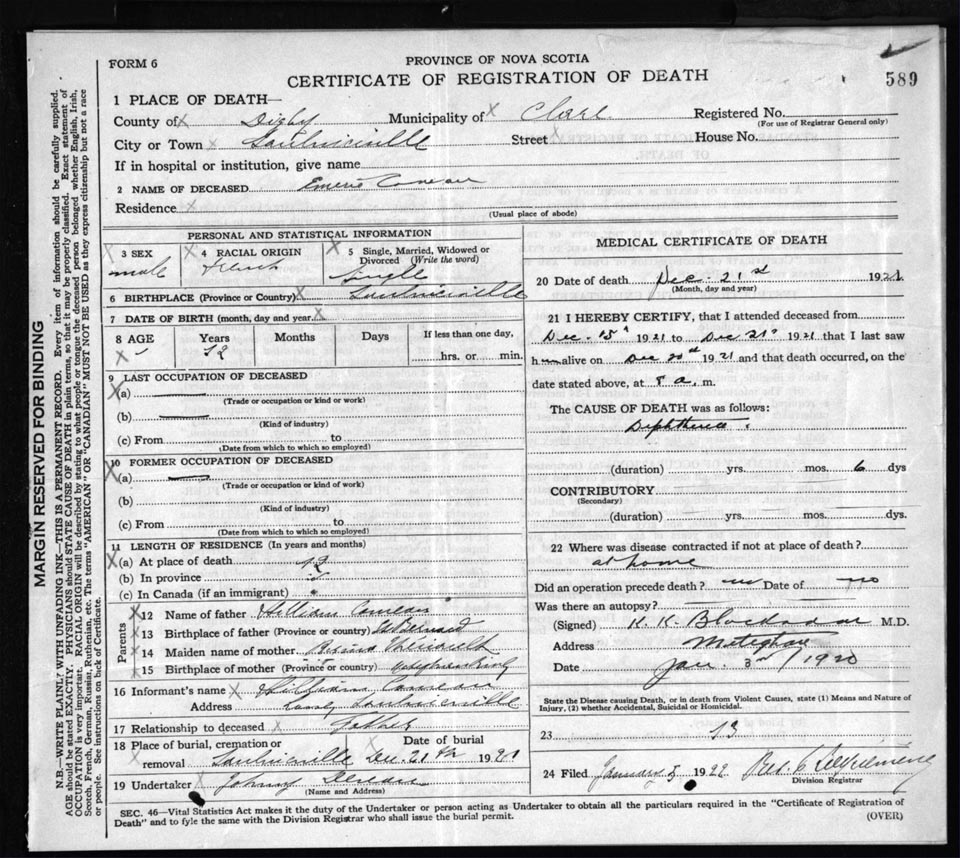 589
FORM 6
PROVINCE OF NOVA SCOTIA
CERTIFICATE OF REGISTRATION OF DEATH
1 PLACE OF DEATH—
County of Digby Municipality of Clare Registered No.
(For use of Registrar General only)
City or Town Saulnierville Street House No.
If in hospital or institution, give name
2 NAME OF DECEASED Comeau
Residence
(Usual place of abode)
PERSONAL AND STATISTICAL INFORMATION
3 SEX male
4 RACIAL ORIGIN French
5 Single, Married, Widowed or Divorced (Write the word)
Single
6 BIRTHPLACE (Province or Country) Saulnierville
7 DATE OF BIRTH (month, day and year)
8 AGE Years Months Days If less than one day,
12 hrs. or min.
9 LAST OCCUPATION OF DECEASED
(a)
(Trade or occupation or kind or work)
(b)
(Kind of industry)
(c) From to
(Date from which to which so employed)
10 FORMER OCCUPATION OF DECEASED
(a)
(Trade or occupation or kind of work)
(b)
(Kind of industry)
(c) From to
(Date from which to which so employed)
11 LENGTH OF RESIDENCE (In years and months)
(a) At place of death 12
(b) In province
(c) In Canada (if an immigrant)
Parents
12 Name of father William Comeau
13 Birthplace of father (Province or country) St Bernard
14 Maiden name of mother
15 Birthplace of mother (Province or country)
16 Informant's name William Comeau
Address Saulnierville
17 Relationship to deceased father
18 Place of burial, cremation or removal Saulnierville
Date of burial Dec. 21 1921
19 Undertaker Johnny
(Name and Address)
MEDICAL CERTIFICATE OF DEATH
20 Date of death Dec. 21st 1921
(Month, day and year)
21 I HEREBY CERTIFY, that I attended deceased from
Dec. 15 1921 to Dec 21st 1921 that I last saw
him alive on Dec 20th 1921 and that death occurred, on the
date stated above, at 8 a. m.
The CAUSE OF DEATH was as follows:
Diphtheria.
(duration) yrs. mos. 6 dys
CONTRIBUTORY
(Secondary)
(duration) yrs. mos. dys.
22 Where was disease contracted if not at place of death?
at home
Did an operation precede death? no Date of no
Was there an autopsy?
(Signed) M.D.
Address Meteghan
Date Jan. 3rd/1920
State the Disease causing Death, or in death from Violent Causes, state (1) Means and Nature of
Injury, (2) whether Accidental, Suicidal or Homicidal.
23 13
24 Filed January 5 1922
Division Registrar
SEC. 46—Vital Statistics Act makes it the duty of the Undertaker or person acting as Undertaker to obtain all the particulars required in the "Certificate of Registration of
Death" and to fyle the same with the Division Registrar who shall issue the burial permit.
(OVER)
MARGIN RESERVED FOR BINDING
N.B.—WRITE PLAINLY WITH UNFADING INK—THIS IS A PERMANENT RECORD. Every item of information should be carefully supplied.
AGE should be stated EXACTLY. PHYSICIANS should STATE CAUSE OF DEATH in plain terms, so that it may be properly classified. Exact statement of
OCCUPATION is very important. RACIAL ORIGIN will be described by stating to what people or tongue the deceased person belonged whether English, Irish,
Scotch, French, German, Russian, Ruthenian, etc. The terms "AMERICAN" OR "CANADIAN" MUST NOT BE USED as they express citizenship but not a race
or people. See instructions on back of Certificate.